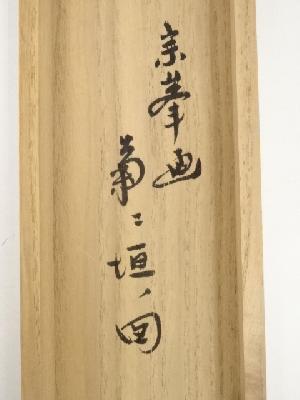 宗峯画
菊ニ垣ノ図